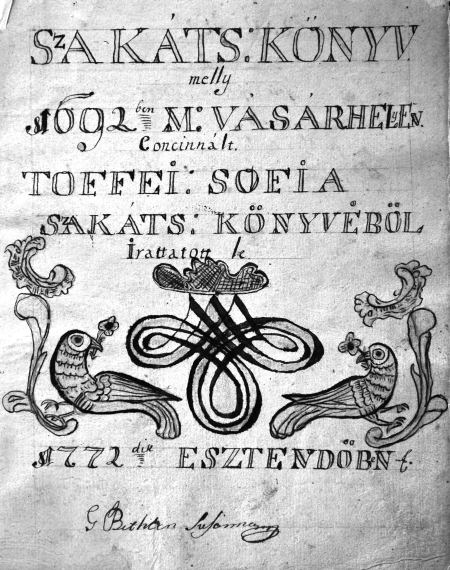 SzAKÁTS: KÖNYV
melly
1692ben M: VÁSÁRHELYEN.
Concinnált.
TOFFEI: SOFIA
SZAKÁTS: KÖNYVÉBÖL
Irattatott le
1772dik ESZTENDÖBEN
G Bethlen Susánna